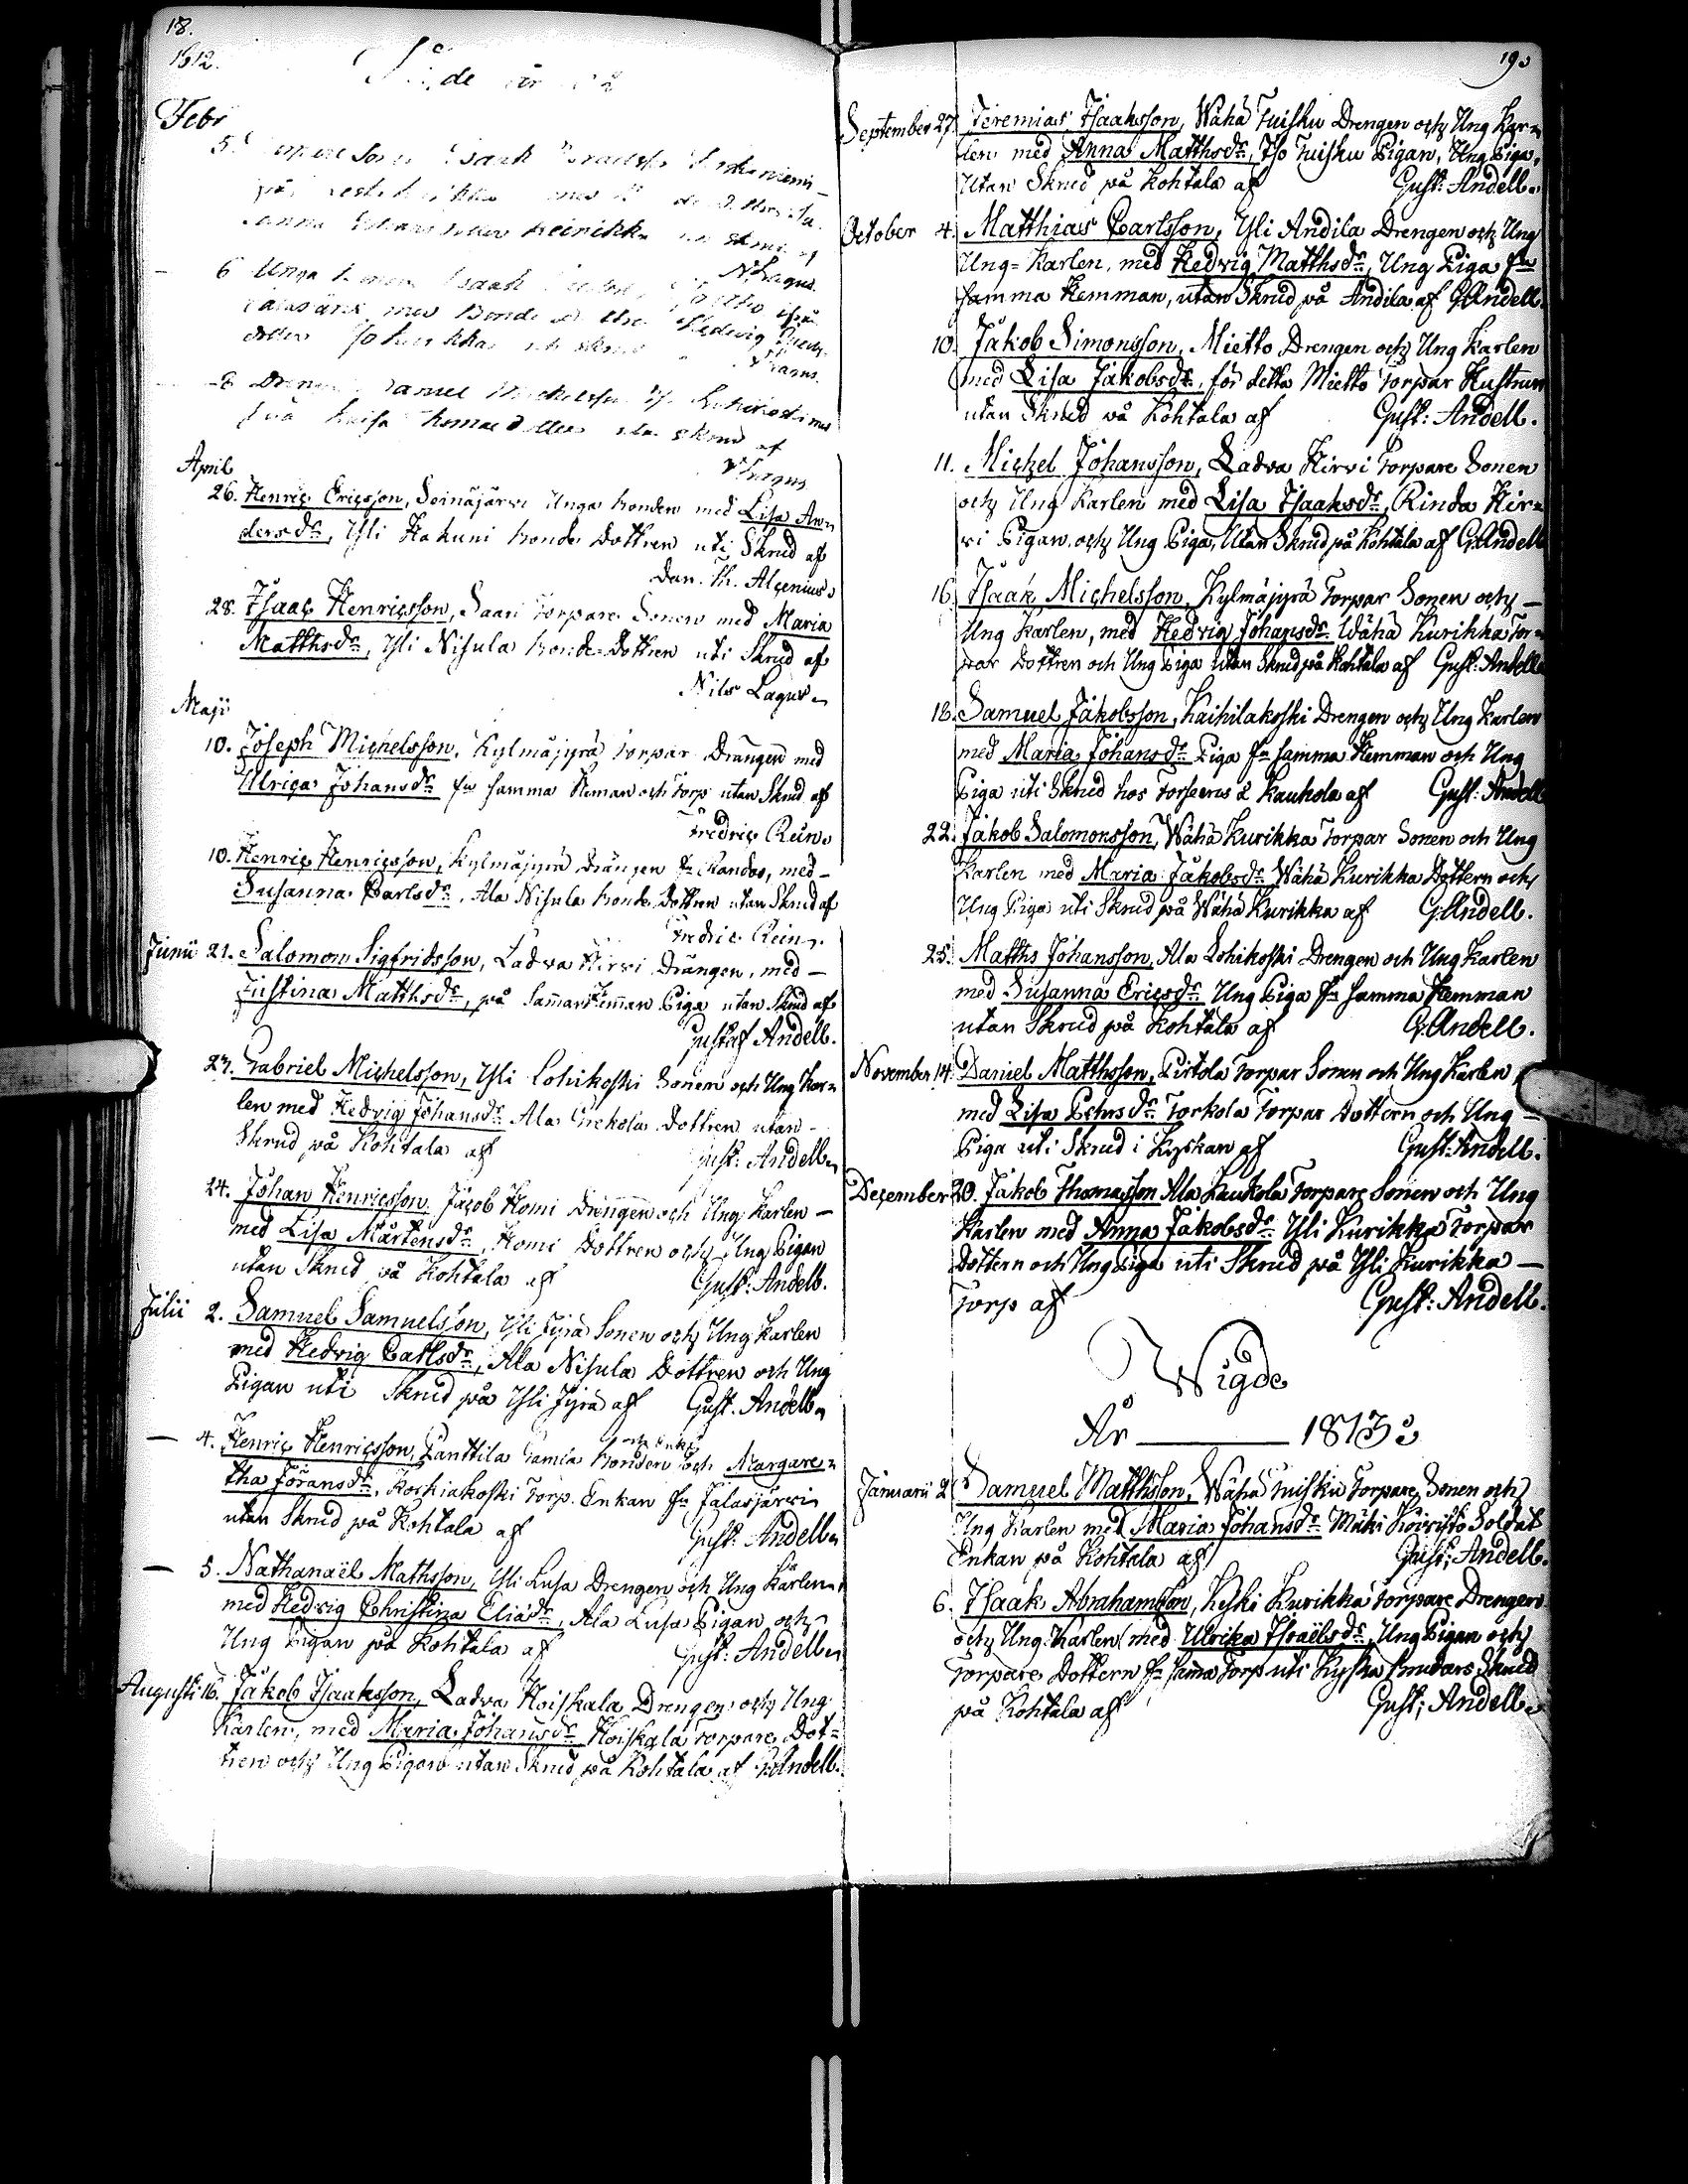 18.
1812.
de
Febr
5.
Sanna
N Lagus.
6 Unga
med Bonde Hedvig
dotter
8 Dreng Daniel
Lagus
April
26. Henric Ericsson, Seinäjärvi Unga bonden med Lisa An=
dersdr, Yli Hakuni bonde Dottren uti Skrud af
Dan. H. Alcenius.
28. Isaac Henricsson, Saari Torpare Sonen med Maria
Matthsdr, Yli Nisula bonde Dottren uti Skrud af
Nils Lagus.
Maji
10. Joseph Michelsson, Kylmäjyrä Torpar Drängen med
Ulrica Johansdr fr samma Heman och Torp utan Skrud af
Fredric Rein.
10. Henric Henricsson, Kylmäjyrä Drängen fr Randos, med –
Susanna Carlsdr, Ala Nisula bonde Dottren utan Skrud af
Fredric Rein.
Junii 21. Salomon Sigfridsson, Ladva Hirvi Drängen, med –
Justina Matthsdr, på Samma Heman Piga utan Skrud af
Gustaf Andell.
23. Gabriel Michelsson, Yli Lohikoski Sonen och Ung Kar=
len med Hedvig Johansdr Ala Dottren utan
Skrud på Kohtala af Gust: Andell.
24. Johan Henricsson, Jacob Homi Drengen och Ung Karlen –
med Lisa Mårtensdr, Homi Dottren och Ung Pigan
utan Skrud på Kohtala af Gust: Andell.
Julii 2. Samuel Samuelsson, Yli Jyrä Sonen och Ung Karlen
med Hedvig Carlsdr, Ala Nisula Dottren och Ung
Pigan uti Skrud på Yli Jyrä af Gust. Andell.
— 4. Henric Henricsson, Panttila Gamla bonden och Margare=
och Enkl.
tha Göransdr, Korkiakoski Torp. Enkan fr Jalasjärvi
utan Skrud på Kohtala af Gust: Andell.
— 5. Nathanaël Mathsson, Yli Lusa Drengen och Ung Karlen
med Hedvig Christina Eliædr, Ala Lusa Pigan och
Ung Pigan på Kohtala af Gust: Andell.
Augusti 16. Jakob Isaaksson, Ladva Hoiskala Drengen och Ung
Karlen, med Maria Johansdr Hoiskala Torpare Dot=
tren och Ung Pigan utan Skrud på Kohtala af G:Andell.
190
September 27. Jeremias Isaaksson, Wähä Tuisku Drengen och Ung Kar=
len med Anna Matthsdr, Iso Tuisku Pigan, Ung Piga,
Utan Skrud på Kohtala af Gust: Andell.
October 4. Matthias Carlsson, Yli Andila Drengen och Ung
Ung=Karlen, med Hedvig Matthsdr, Ung Piga frn
samma Hemman, utan Skrud på Andila af G:Andell.
10. Jakob Simonsson, Mietto Drengen och Ung Karlen
med Lisa Jakobsdr, för detta Mietto Torpar Hustrun
utan Skrud på Kohtala af Gust: Andell.
11. Michel Johansson, Ladva Hirvi Torpare Sonen
och Ung Karlen med Lisa Isaaksdr, Rinda Hir=
vi Pigan och Ung Piga, Utan Skrud på Kohtala af G:Andell
16. Isaak Michelsson, Kylmäjyrä Torpar Sonen och –
Ung Karlen, med Hedvig Johansdr Wähä Kurikka Tor=
par Dottren och Ung Piga utan Skrud på Kohtala af Gust: Andell
18. Samuel Jakobsson, Kaihilakoski Drengen och Ung Karlen
med Maria Johansdr Piga fr samma Hemman och Ung
Piga uti Skrud hos å Kaukola af Gust: Andell
22. Jakob Salomonsson, Wähä Kurikka Torpar Sonen och Ung
Karlen med Maria Jakobsdr Wähä Kurikka Dottern och
Ung Piga uti Skrud på Wähä Kurikka af G:Andell.
25. Matths Johansson, Ala Lohikoski Drengen och Ung Karlen
med Susanna Ericsdr Ung Piga fr samma Hemman
utan Skrud på Kohtala af G:Andell.
November 14. Daniel Matthsson, Pirtola Torpar Sonen och Ung Karlen
med Lisa Pehrsdr Torkola Torpar Dottern och Ung –
Piga uti Skrud i Kyrkan af Gust:Andell.
December 20. Jakob Thomasson Ala Kaukola Torpare Sonen och Ung
Karlen med Anna Jakobsdr Yli Kurikka Torpar
Dottern och Ung Piga uti Skrud på Yli Kurikka —
Torp af Gust: Andell.
Wigde
År —— 1813.
Januarii 2 Samuel Matthsson, Wähä Tuisku Torpare Sonen och
Ung Karlen med Maria Johansdr Mäki Koivisto Soldat
Enkan på Kohtala af Gust; Andell.
6. Isaak Abrahamsson, Keski Kurikka Torpare Drengen
och Ung Karlen med Ulrika Israëlsdr, Ung Pigan och
Torpare Dottern fr sama Torp uti Kyrko brudars Skrud
på Kohtala af Gust; Andell.